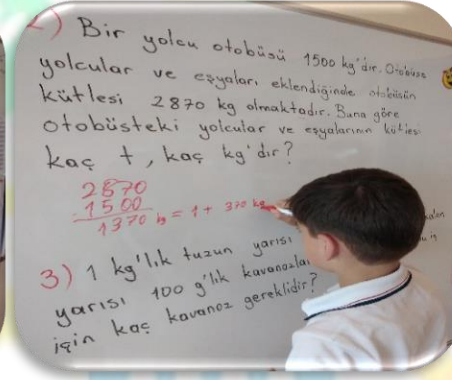 2) Bir yolcu otobüsü 1500 kg'dır. Otobüse
yolcular ve eşyaları eklendiğinde otobüsün
kütlesi 2870 kg olmaktadır. Buna göre
otobüsteki yolcular ve eşyalarının kütlesi
kaç t, kaç kg'dır?
2870
1500
1370 kg = 1 t 370 kg
3) 1 kg'lık tuzun yarısı
yarısı 100 g'lık kavanozla
için kaç kavanoz gereklidir?